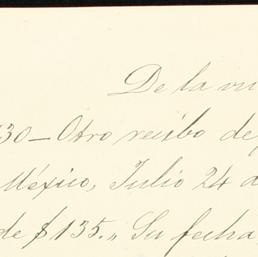 De la vu
30 — Otro recibo de
México, Julio 24 d
de $135.,, Su fecha